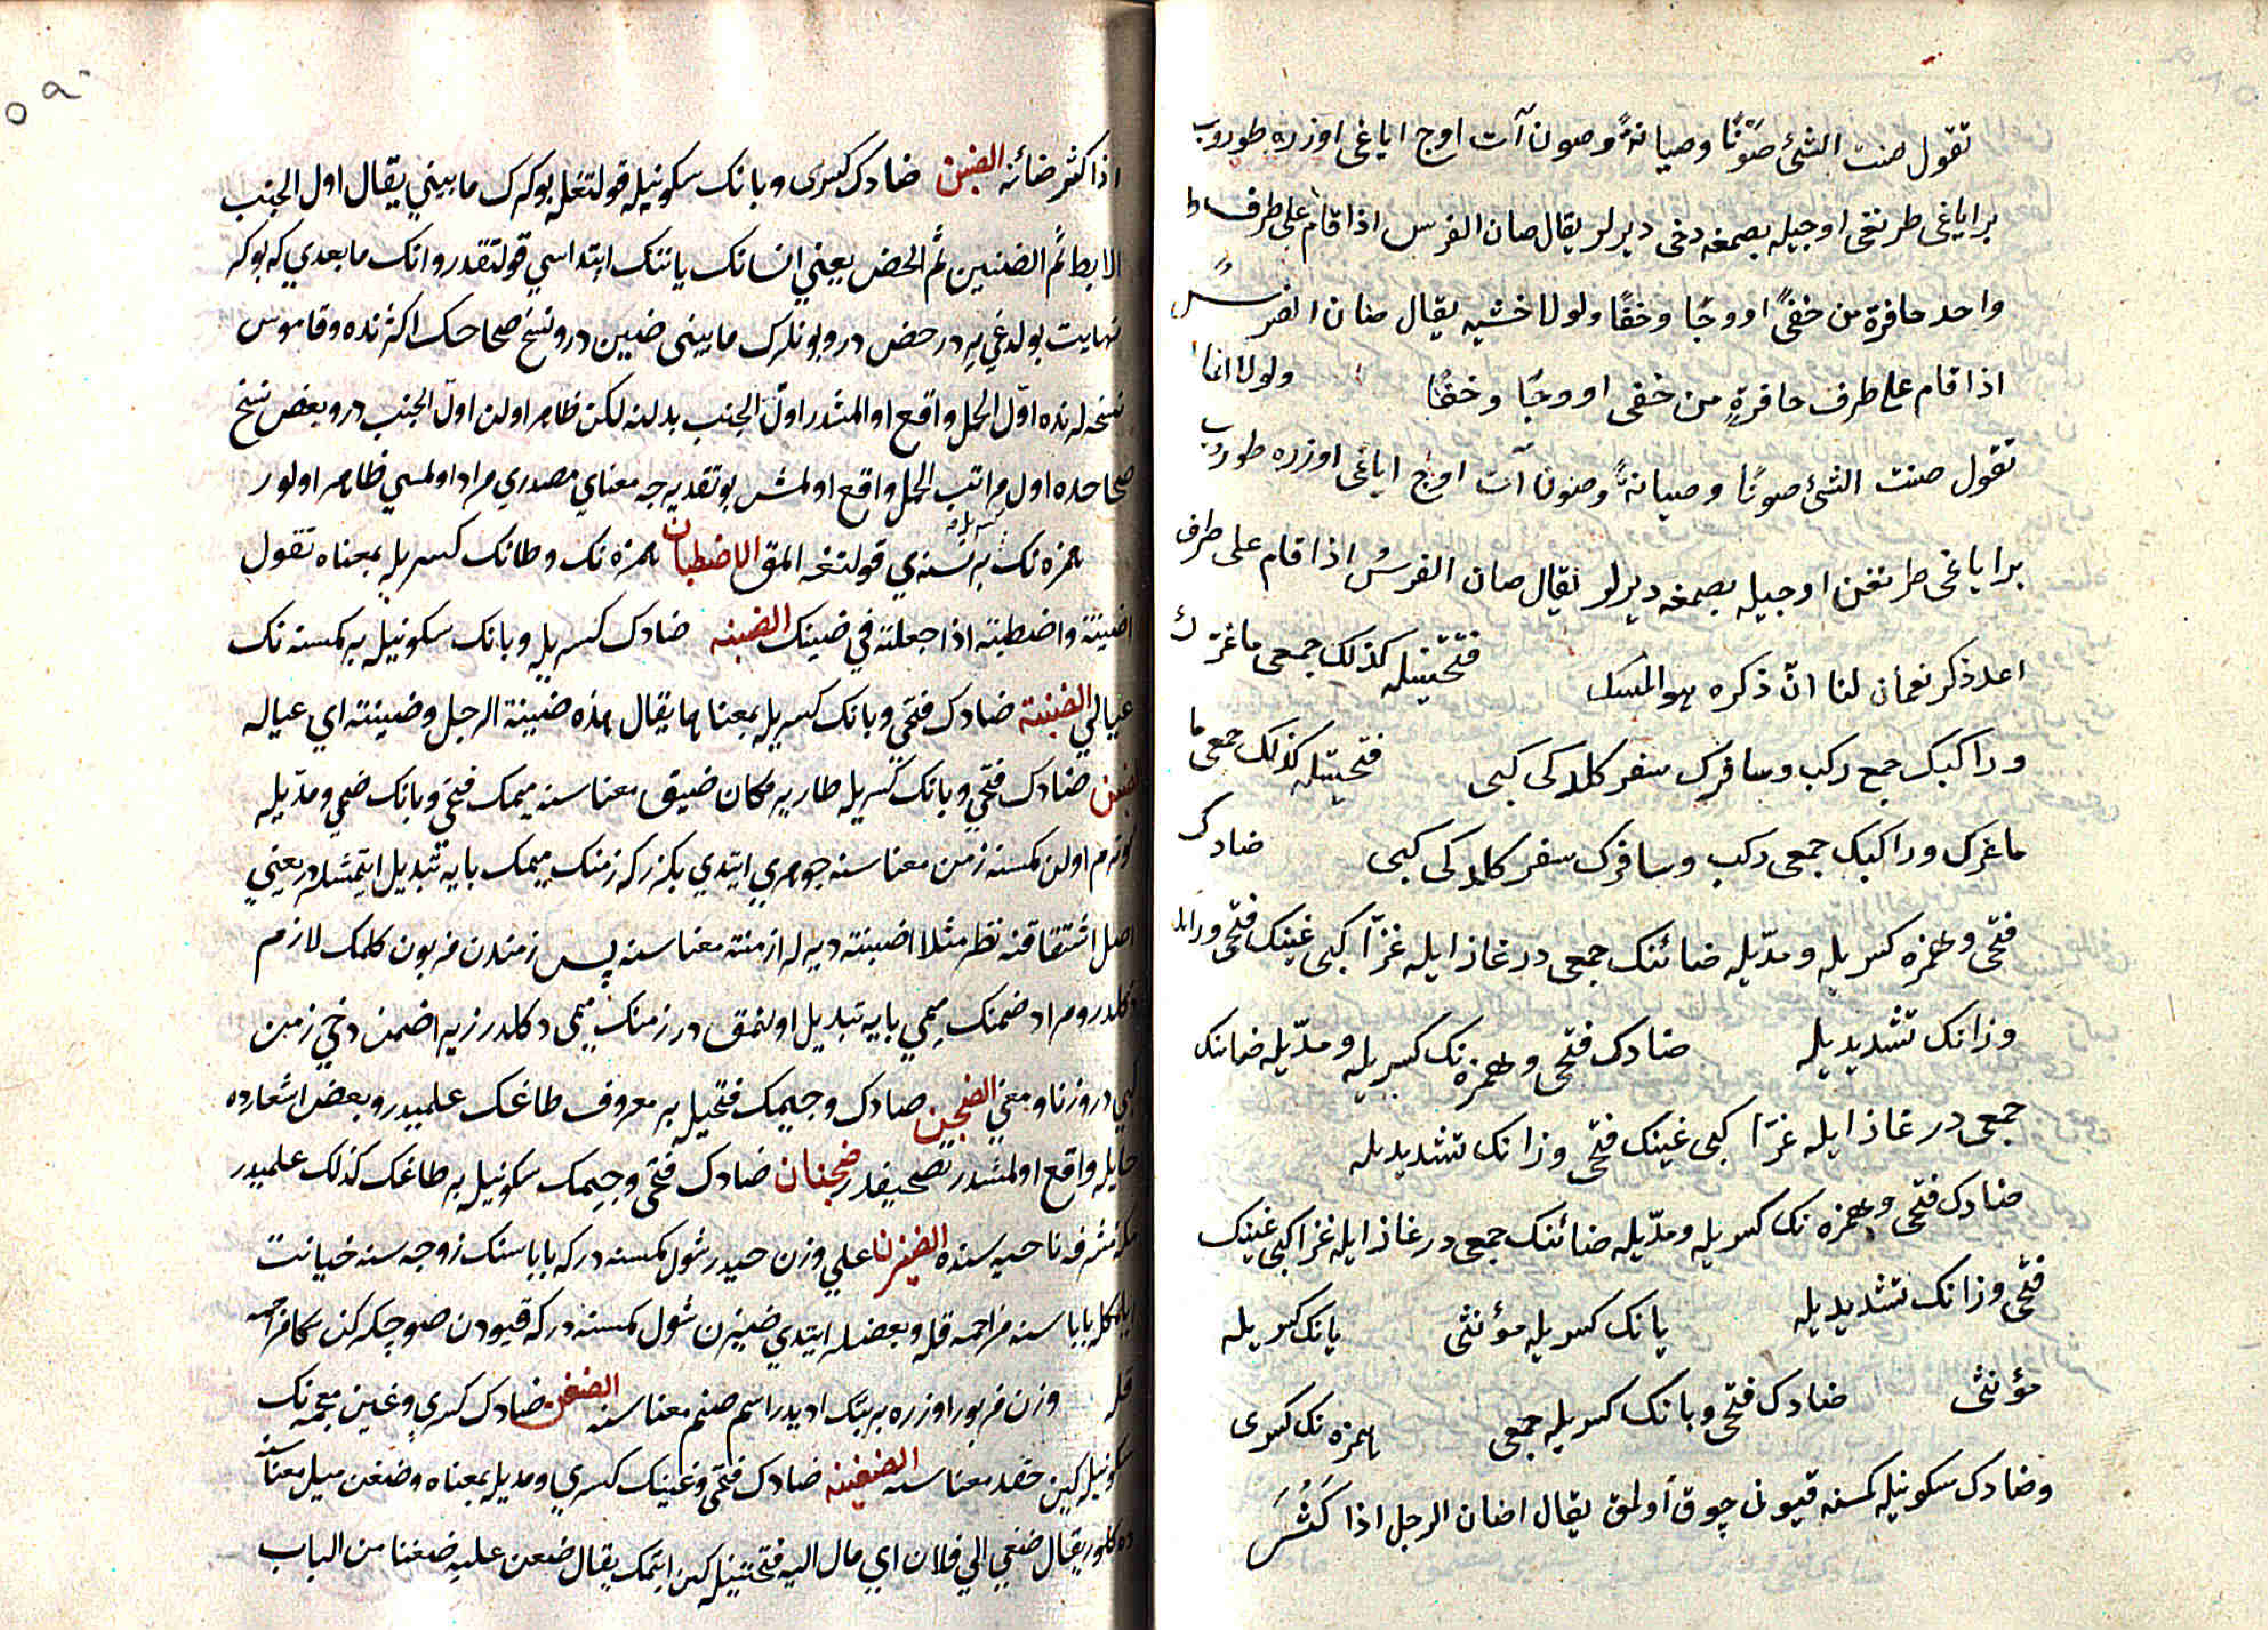 تقول صنت الشئ صَوْنًا وصيانةً وصون آت اوج اياغى اوزره طوروب
براياغى طرنغى اوجيله بصمغه دخى ديرلر يقال صان الفرس اذا قام على طرف
واحد حافرة من خفىً اووجًا وخفًا ولولا خشيه يقال صان الفرسُ
اذا قام على طرف حافرةٍ من خفى اووجًا وخفًا ولولا انما
تقول صنت الشئ صونًا وصيانةً وصونا آت اوج اياغى اوزره طوروب
براياغى طرنغن اوجيله بصمغه ديرلر يقال صان الفرسُ اذا قام على طرف
اعد ذكر نعمان لنا انّ ذكره هو المسك فتحتينله كذلك جمعى ماغزك
وراكبك جمع ركب ومسافرك سفر كلدكى كبى فتحتينله كذلك جمعى ما
ماغزك وراكبك جمعى ركب ومسافرك سفر كلدكى كبى ضادك
فتحى وهمزه كسريله ومدّيله ضائنك جمعى در غاز ايله غزّا كبى غينك فتحى
وزانك تشديديله ضادك فتحى وهمزه نك كسريله ومدّيله ضاننك
جمعى در غاز ايله غزّا كبى غينك فتحى وزانك تشديديله
ضادك فتحى وهمزه نك كسريله ومدّيله ضائنك جمعى در غاز ايله غزا كبى غينك
فتحى وزانك تشديديله يانك كسريله مؤنثى يانك كسريله
مؤنثى ضادك فتحى وبانك كسريله جمعى همزه نك كسرى
وضادك سكونيله كمسنه قيونى چوق اولمق يقال اضان الرجل اذا كَثُرَ
اذا كثر ضائنه الضبن ضادك كسرى وبانك سكونيله قولتغله بوكرك مابينى يقال اول الجنب
الابط ثم الضبين ثم الحضن يعني انسانك ياننك ابتداسي قولتقدر وانك مابعدي كه بوكر
نهايت بولدغي يردر حضن در وبونلرك مابينى ضبين در ونسخ صحاحك اكثرنده وقاموس
نسخه لرنده اوّل الحمل واقع اولمشدر اوّل الجنب بدلنه لكن ظاهر اولن اول الجنب در وبعض نسخ
صحاحده اول مراتب الحمل واقع اولمش بو تقديرجه معناي مصدري مراد اولمسي ظاهر اولور
همزه نك بر نسنه ي قولتغه المق الاضطبان همزه نك وطانك كسريله بمعناه تقول
اضبنته واضطبنته اذا جعلته في ضبنك الضبنه ضادك كسريله وبانك سكونيله بر كمسنه نك
عيالي الضبنة ضادك فتحي وبانك كسريله بمعناها يقال هذه ضبينة الرجل وضبنته اي عياله
ضبن ضادك فتحي وبانك كسريله طار ير مكان ضيق معناسنه ميمك فتحي وبانك ضمي ومدّيله
كوترم اولن كمسنه زمن معناسنه جوهري ايتدي بكزركه زمنك ميمك بايه تبديل ايتمشلدر يعني
اصل اشتقاقنه نظر مثلا اضبنته ديرلر ازمنته معناسنه پس زمندن مزبون كلمك لازم
دكلدر ومراد ضمنك ميمي بايه تبديل اولنمق در زمنك ميمى دكلدر زيرا ضمن دخي زمن
كبي در وزنا ومعني الضجن ضادك وجيمك فتحيله بر معروف طاغك علميدر وبعض اشعارده
حايله واقع اولمشدر تصحيفدر ضجنان ضادك فتحى وجيمك سكونيله بر طاغك كذلك علميدر
مكه مشرفه ناحيه سنده الضيزن على وزن حيدر شول كمسنه در كه باباسنك زوجه سنه خيانت
ايلمكله باباسنه مزاحمه قله وبعضلر ايتدي ضيزن شول كمسنه در كه قيودن صو چكركن مزاحمه
قله وزن مزبور اوزره بر بتك اديدر اسم صنم معناسنه الضغن ضادك كسري وغين معجمه نك
سكونيله كين حقد معناسنه الضغينه ضادك فتحى وغينك كسري ومديله بمعناه وضغن ميل معناسنه
ده كلور يقال ضغني الي فلان اي مال اليه فتحتينله كين ايتمك يقال ضغن عليه ضغنا من الباب